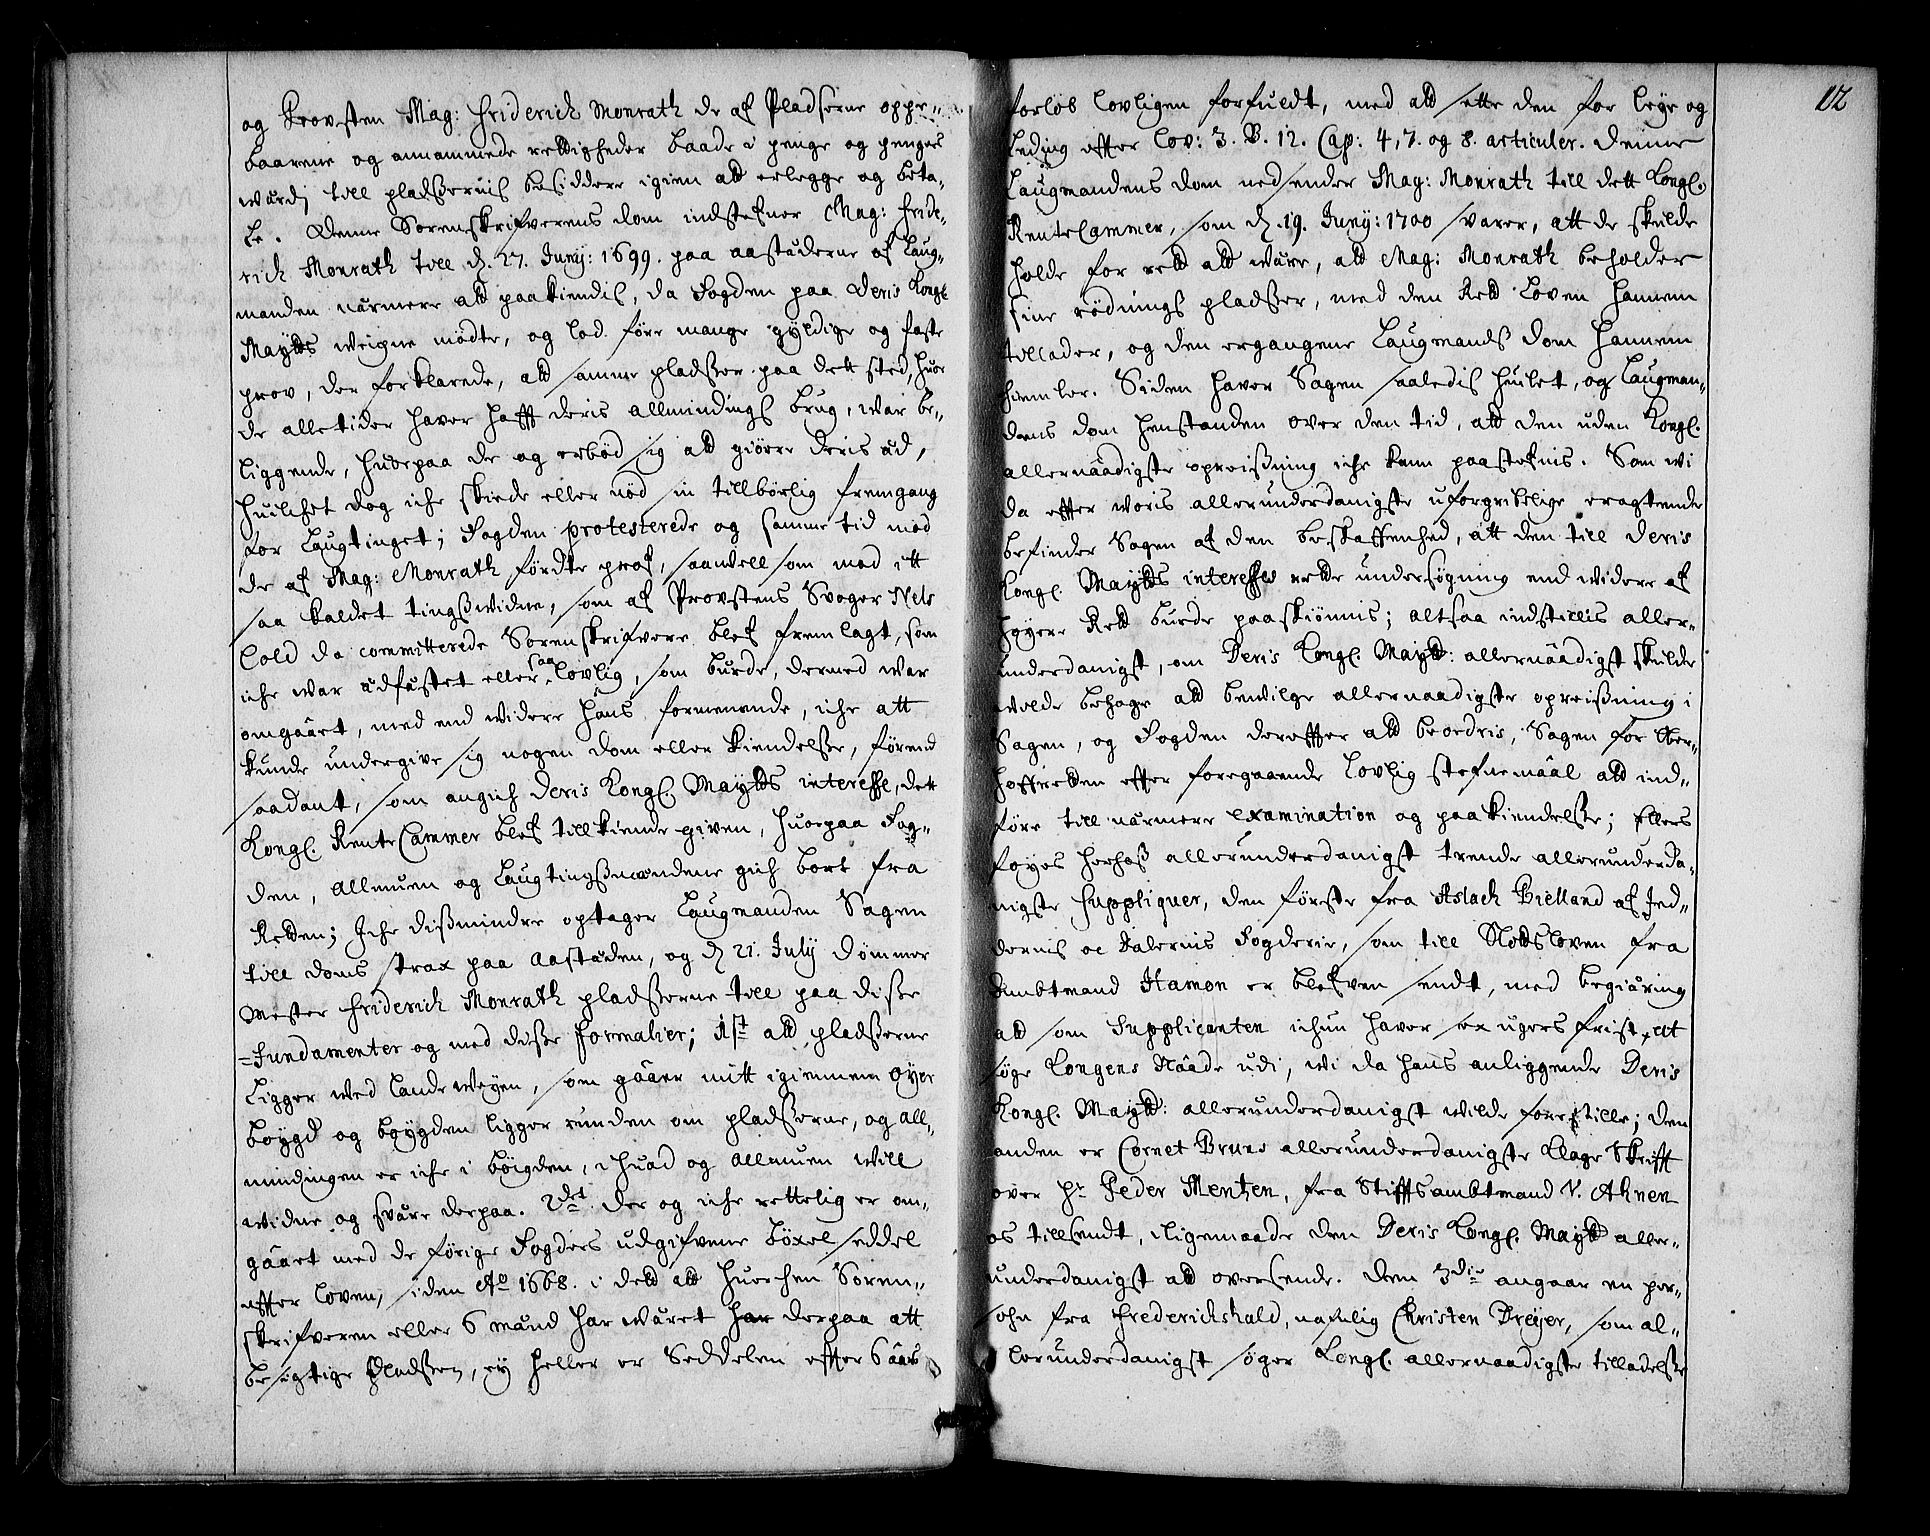 og Provsten Mag: Friderich Monrath de af Pladserne oppe-
baarene og annammede rettigheder baade i penge og penges
wærdj till pladsernis besiddere igien att erlegge og beta-
le. Denne Sorenskrifverens dom indstefner Mag: Fride-
rich Monrath till d. 27. Junij: 1699. paa aastæderne af Laug-
manden nærmere att paakiendis, da Fogden paa Deris Kongl.
Maytts weigne mødte, og lod føre mange gyldige og faste
prov, der forklarede, att samme pladser paa dett sted, huor
de alletider hawer hafft deris allmindings brug, war be-
liggende, huorpaa de og erbød sig att giøre deris æd,
huilchet dog iche skiede eller nød sin tillbørlig fremgang
for Laugtinget; Fogden protesterede og samme tid mod
de af Mag: Monrath førdte prof, saawell som mod itt
saa kaldet tingswidne, som af Provstens Svoger Nels
Lold da committerede Sorenskrifvere blef fremlagt, som
iche war udfæstet eller saa lovlig, som burde, dermed war
omgaaet, med end widere hans formenende, iche att
kunde undergive sig nogen dom eller kiendelse, førend
saadant, som angich Deris Kongl. Maytts interesse, dett
Kongl. Rente Cammer blef tillkiende given, huorpaa Fog-
den, Allmuen og Laugtingsmændene gich bort fra
Retten; Iche dismindre optager Laugmanden Sagen
till doms strax paa Aastæden, og d. 21. July dømmer
Mester Friderich Monrath pladserne till paa disse
Fundamenter og med disse Formalier; 1st att pladserne
Ligger wed Landeweyen, som gaaer mitt igiennem Øyse
bøygd og bøygden ligger runden om pladserne, og all-
mindingen er iche i bøigden, i huad og Allmuen will
widne og svære derpaa. 2det der og iche rettelig er om-
gaaet med de forige Fogders udgifvene bøxel seddel
effter Loven, siden Ao 1668. i dett att huerchen Soren-
skrifveren eller 6 mænd har wæret har derpaa att
besigtige Pladsen, ey heller er Seddelen effter 6 aars
12
forløb lovligen forfuldt, med att sette den for leye og
leding effter Lov: 3. B. 12. Cap: 4, 7. og 8. articuler. Denne
Laugmandens dom nedsender Mag: Monrath till dett Kongl.
Rente Cammer, som d. 19. Junij: 1700 svarer, att de skulde
holde for rett att wære, att Mag: Monrath beholder
sine rødnings pladser, med den Rett Loven hannem
tillader, og den ergangene Laugmands dom hannem
hiemler. Siden hawer Sagen saaledis huilet, og Laugman-
dens dom henstanden over den tid, att den uden Kongl.
allernaadigste opreisning iche kann paastefnis. Som wi
da effter woris allerunderdanigste uforgribelige eragtende
befinder Sagen af den beskaffenhed, att den till Deris
Kongl. Maytts interesses rette undersøgning end widere af
høyere Rett burde paaskiønnis; altsaa indstillis aller-
underdanigst, om Deris Kongl. Maytt: allernaadigst skulde
wilde behage att bewilge allernaadigste opreisning i
Sagen, og Fogden dereffter att beordris, Sagen for Ober-
hoffretten effter foregaaende lovlig stefnemaal att ind-
føre till nærmere examination og paakiendelse; Ellers
føyes herhos allerunderdanigst trende allerunderda-
nigste suppliquer, den første fra Aslach Bielland af Jed-
dernis oc Dalernis Fogderie, som till Slotsloven fra
Ambtmand Hamon er blefven sendt, med begiæring
att som Supplicanten ichun hawer sex ugers frist, at
søge Kongens Naade udi, wi da hans anliggende Deris
Kongl. Maytt: allerunderdanigst wilde forestille; den
anden er Cornet Bruns allerunderdanigste Klage Skrifft
over Hr. Peder Mentzen, fra Stifftsambtmand V. Ahnen
os tillsendt, iligemaade den Deris Kongl. Maytt aller-
underdanigst att oversende. Den 3die angaar en per-
sohn fra Frederichshald, nafnlig Christen Dreyer, som al-
lerunderdanigst søger Kongl. allernaadigste tilladelse